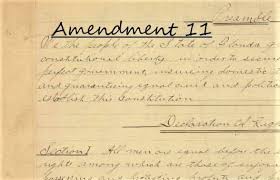 Preamble
Amendment 11
We the people of the State of Florida
constitutional liberty in order to secu
perfect government, insuring domestic
and guaranteeing equal civil and politic
establish this Constitution.
Declaration of Righ
Section 1 All men are equal before the
rights among which are those of enjoy